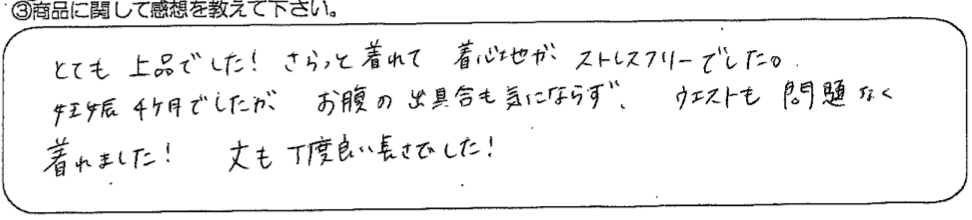 ③商品に関して感想を教えて下さい。
とても 上品でした! さらっと着れて 着心地が ストレスフリーでした。
妊娠 4ケ月でしたが お腹の 出具合も気にならず、 ウエストも 問題なく
着れました! 丈も 丁度良い長さでした!